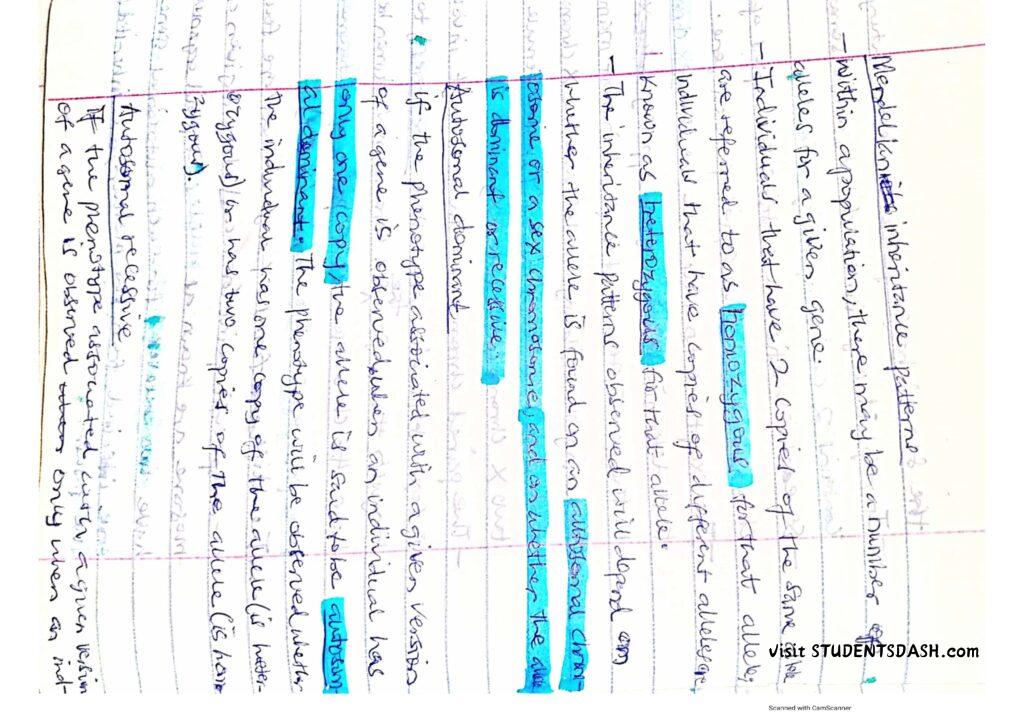 Mendelian inheritance patterns
- Within a population, there may be a number of
alleles for a given gene.
- Individuals that have 2 copies of the same allele
are referred to as homozygous for that allele.
Individuals that have copies of different alleles are
known as heterozygous for that allele.
- The inheritance patterns observed will depend on
whether the allele is found on an autosomal chrom-
osome or a sex chromosome, and on whether the allele
is dominant or recessive.
Autosomal dominant
If the phenotype associated with a given version
of a gene is observed when an individual has
only one copy, the allele is said to be autosom
al dominant. The phenotype will be observed whether
the individual has one copy of the allele (is heter-
ozygous) or has two copies of the allele (is homo
zygous).
Autosomal recessive
If the phenotype associated with a given version
of a gene is observed only when an ind-
visit STUDENTSDASH.com
Scanned with CamScanner